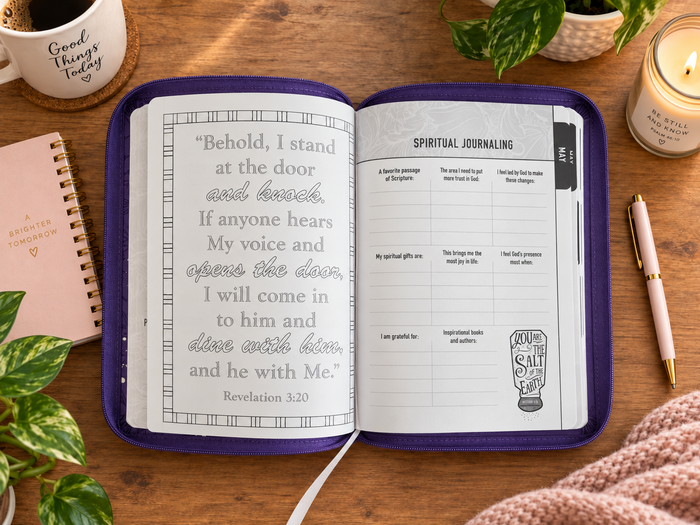 Good
Things
Today
A
BRIGHTER
TOMORROW
“Behold, I stand
at the door
and knock.
If anyone hears
My voice and
opens the door,
I will come in
to him and
dine with him,
and he with Me.”
Revelation 3:20
SPIRITUAL JOURNALING
MAY
MAY
A favorite passage
of Scripture:
The area I need to put
more trust in God:
I feel led by God to make
these changes:
My spiritual gifts are:
This brings me the
most joy in life:
I feel God's presence
most when:
I am grateful for:
Inspirational books
and authors:
YOU ARE
THE
SALT
OF THE
EARTH
BE STILL
AND KNOW
PSALM 46:10